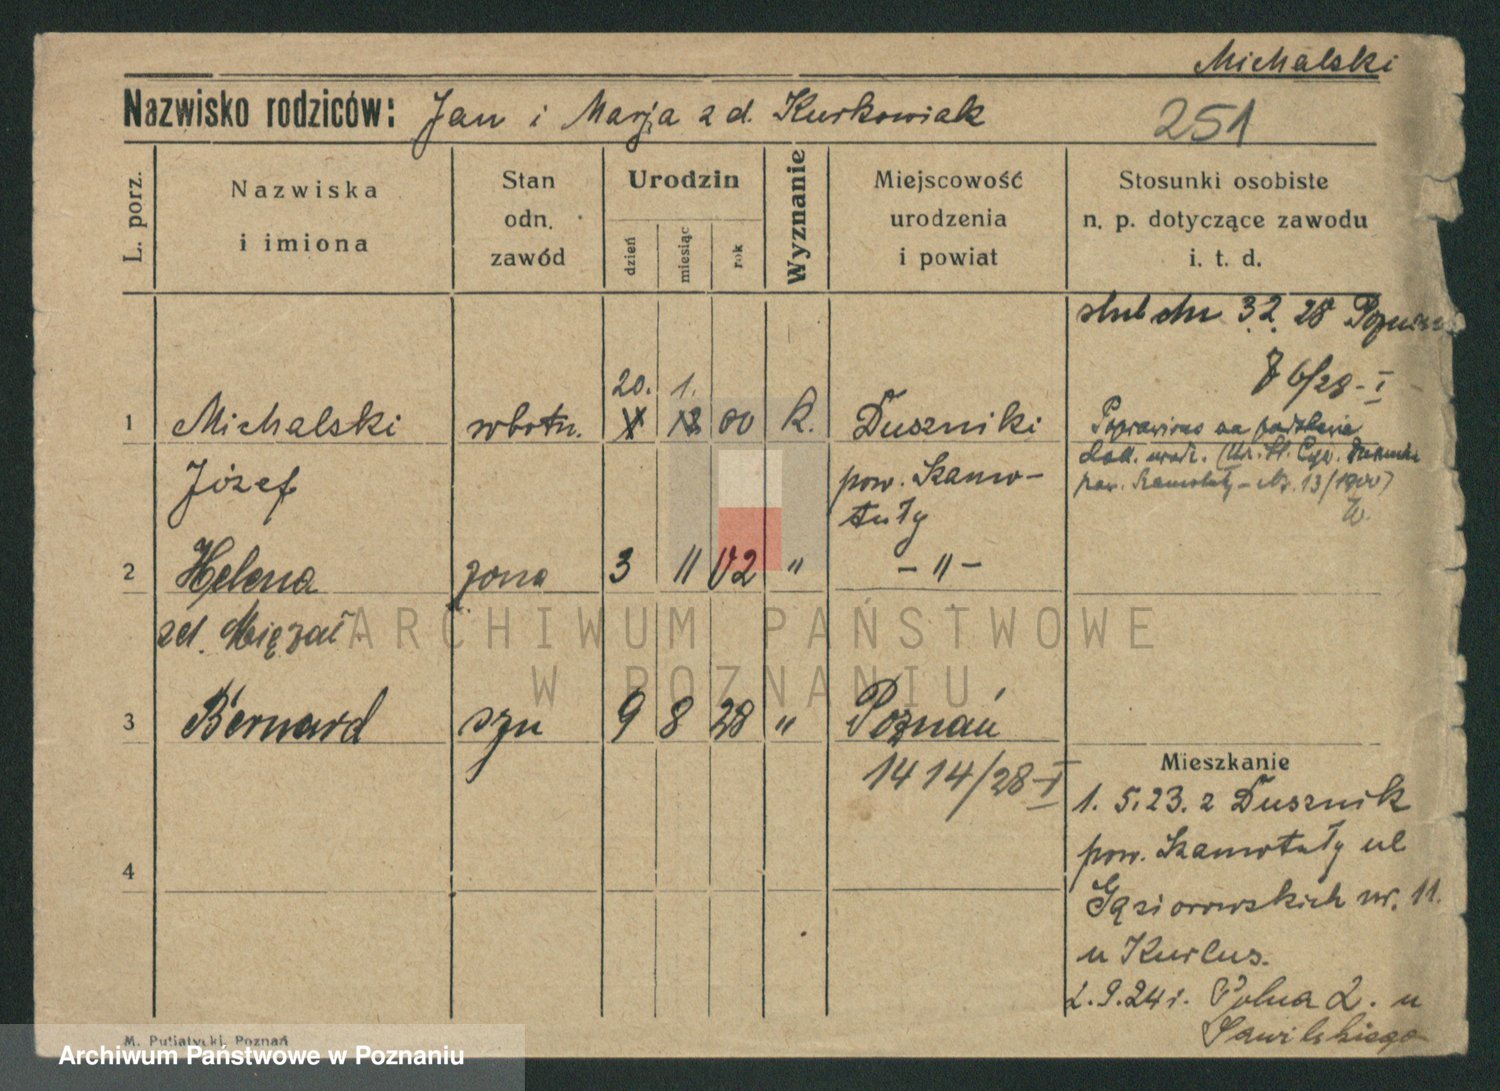 Michalski
Nazwisko rodziców: Jan i Marja z d. Kurkowiak
251
L. porz.
Nazwiska
i imiona
Stan
odn.
zawód
Urodzin
dzień
miesiąc
rok
Wyznanie
Miejscowość
urodzenia
i powiat
Stosunki osobiste
n. p. dotyczące zawodu
i. t. d.
ślub dn 3.2. 28
6/28-I
20. 1.
1 Michalski robotn. 00 k. Duszniki
Poprawiono na podstawie
Józef pow. Szamo-
tuły
pow. Szamotuły - Nr. 13/1900)
2 Helena żona 3 11 02 " - " -
zd.
3 Bernard syn 9 8 28 " Poznań
1414/28-I
Mieszkanie
1. 5.23. z Dusznik
pow. Szamotuły ul
4
Gąsiorowskich nr. 11.
u Kurlus.
2.9.24 r. Polna 2. u
M. Putiatycki, Poznań
Archiwum Państwowe w Poznaniu
ARCHIWUM PAŃSTWOWE
W POZNANIU